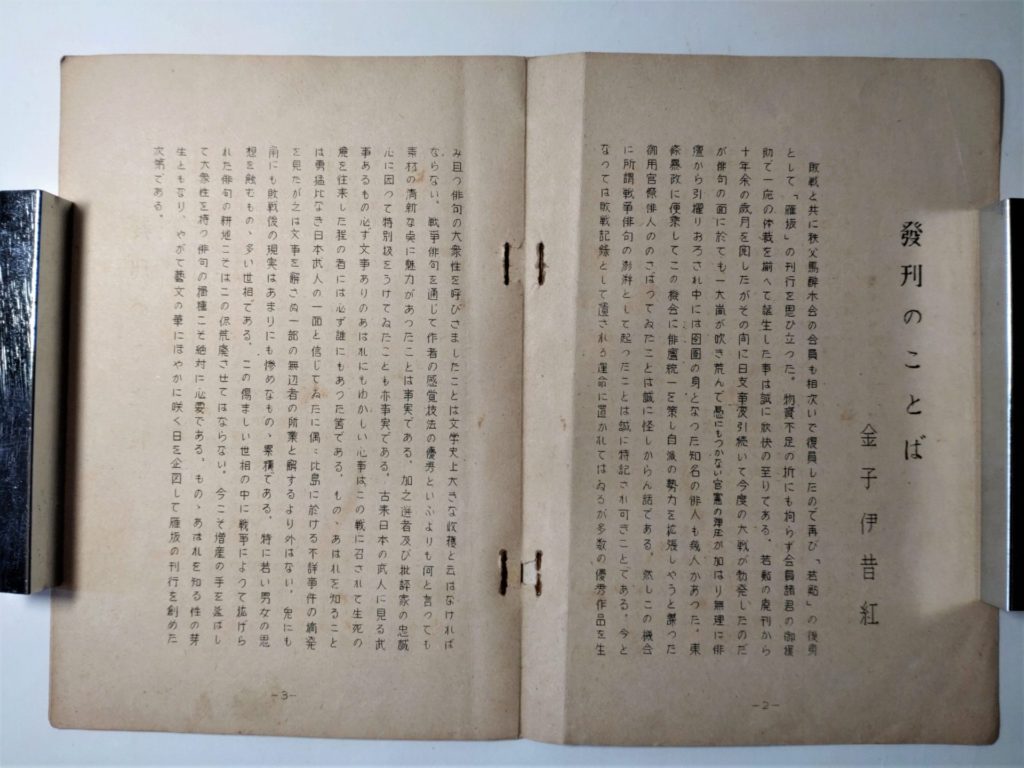 發刊のことば
金子伊昔紅
敗戦と共に秩父馬酔木会の会員も相次いで復員したので再び「若鮎」の後身
として、「雁坂」の刊行を思ひ立つた。物資不足の折にも拘らず会員諸君の御援
助で一応の体裁を揃へて誕生した事は誠に欣快の至りである。若鮎の廃刊から
十年余の歳月を閲したがその間に日支事変引続いて今度の大戦が勃発したのだ
が俳句の面に於ても一大嵐が吹き荒んで愚にもつかない官憲の弾圧が加はり無理に俳
壇から引擢りおろされ中には囹圄の身となつた知名の俳人も幾人かあつた。東
條悪政に便乗してこの機会に俳壇統一を策し自派の勢力を拡張しやうと謀つた
御用官僚俳人ののさばつてゐたことは誠に怪しからん話である。然しこの機会
に所謂戦争俳句の影群として起つたことは誠に特記され可きことである。今と
なつては敗戦記録として遺される運命に置かれてはゐるが多数の優秀作品を生
-2-
み且つ俳句の大衆性を呼びさましたことは文学史上大きな収穫と云はなければ
ならない、戦争俳句を通じて作者の感覚技法の優秀といふよりも何と言つても
素材の清新な点に魅力があつたことは事実である、加之選者及び批評家の忠誠
心に因つて特別扱をうけてゐたことも亦事実である。古来日本の武人に見る武
事あるもの必ず文事ありのあはれにもゆかしい心事はこの戦に召されて生死の
境を往来した程の者には必ず誰にもあつた筈である、もの、あはれを知ること
は勇猛比なき日本武人の一面と信じてゐたに偶、比島に於ける不詳事件の摘発
を見たが之は文事を解さぬ一部の無辺者の所業と解するより外はない、兎にも
角にも敗戦後の現実はあまりにも惨めなもの、累積である、特に若い男女の思
想を蝕むもの、多い世相である、この傷ましい世相の中に戦争によつて拡げら
れた俳句の耕地こそはこの侭荒廃させてはならない。今こそ増産の手を延ばし
て大衆性を持つ俳句の播種こそ絶対に必要である、もの、あはれを知る性の芽
生ともなり、やがて藝文の華にほやかに咲く日を企図して雁坂の刊行を創めた
次第である。
-3-